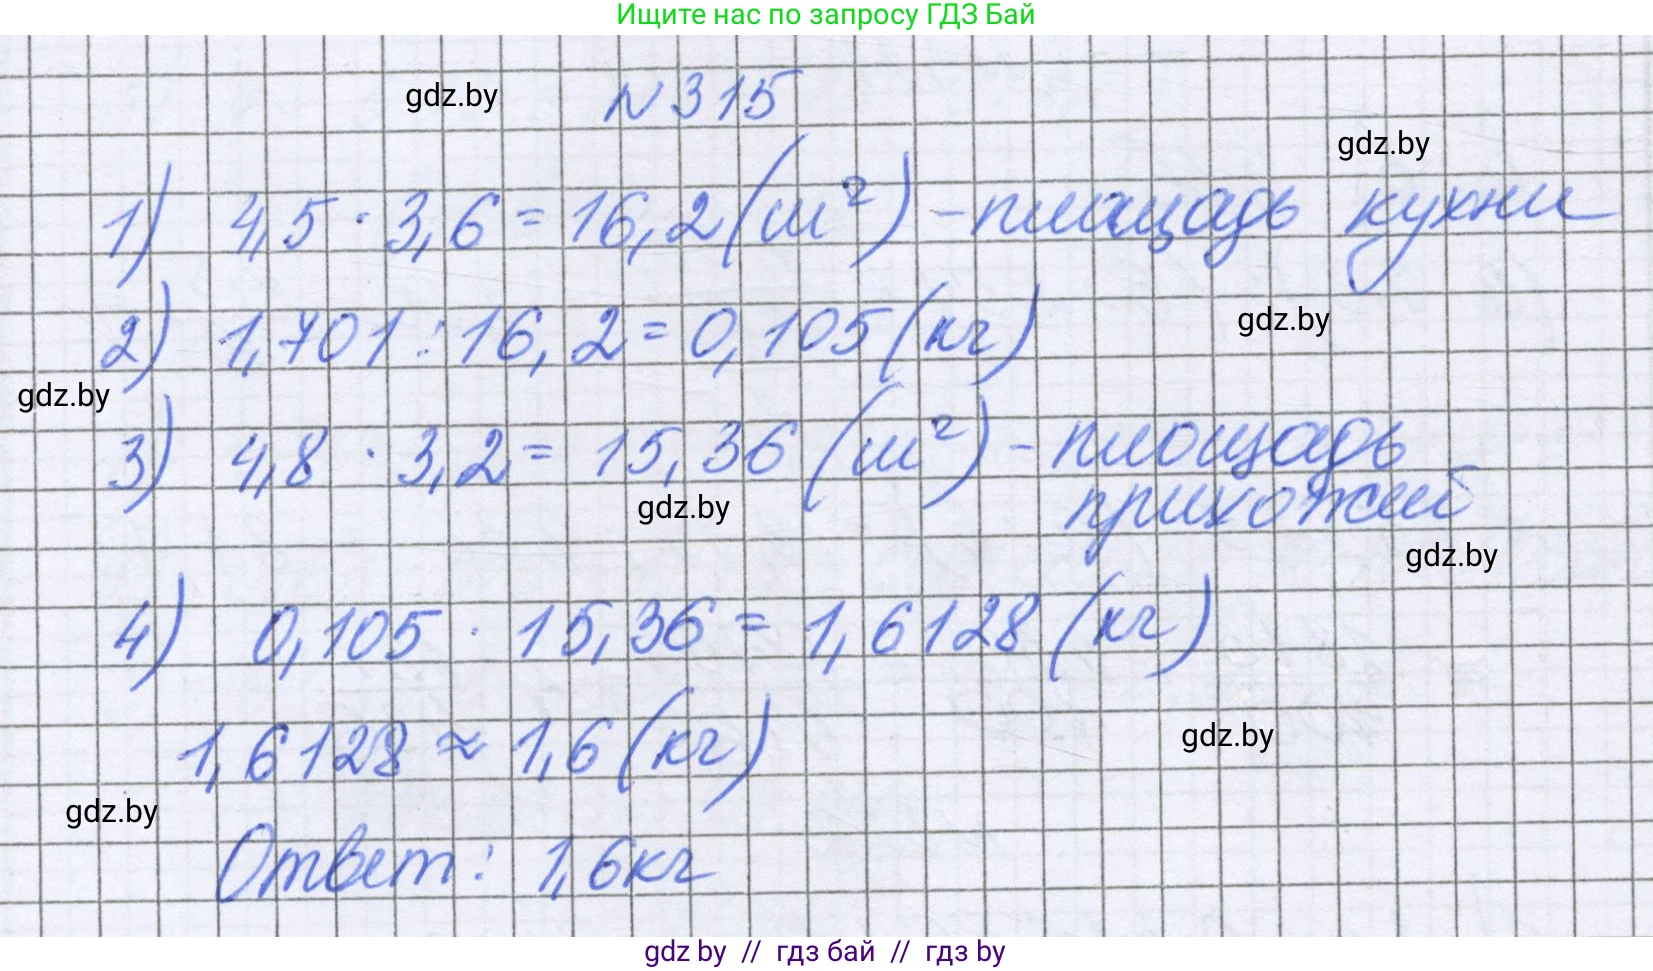 Ищите нас по запросу ГДЗ Бай
gdz.by
N 315
gdz.by
1) 4,5 · 3,6 = 16,2 (м²) - площадь кухни
gdz.by
2) 1,701 : 16,2 = 0,105 (кг)
gdz.by
3) 4,8 · 3,2 = 15,36 (м²) - площадь
прихожей
gdz.by
gdz.by
4) 0,105 · 15,36 = 1,6128 (кг)
1,6128 ≈ 1,6 (кг)
gdz.by
gdz.by
Ответ: 1,6 кг
gdz by // гдз бай // гдз by